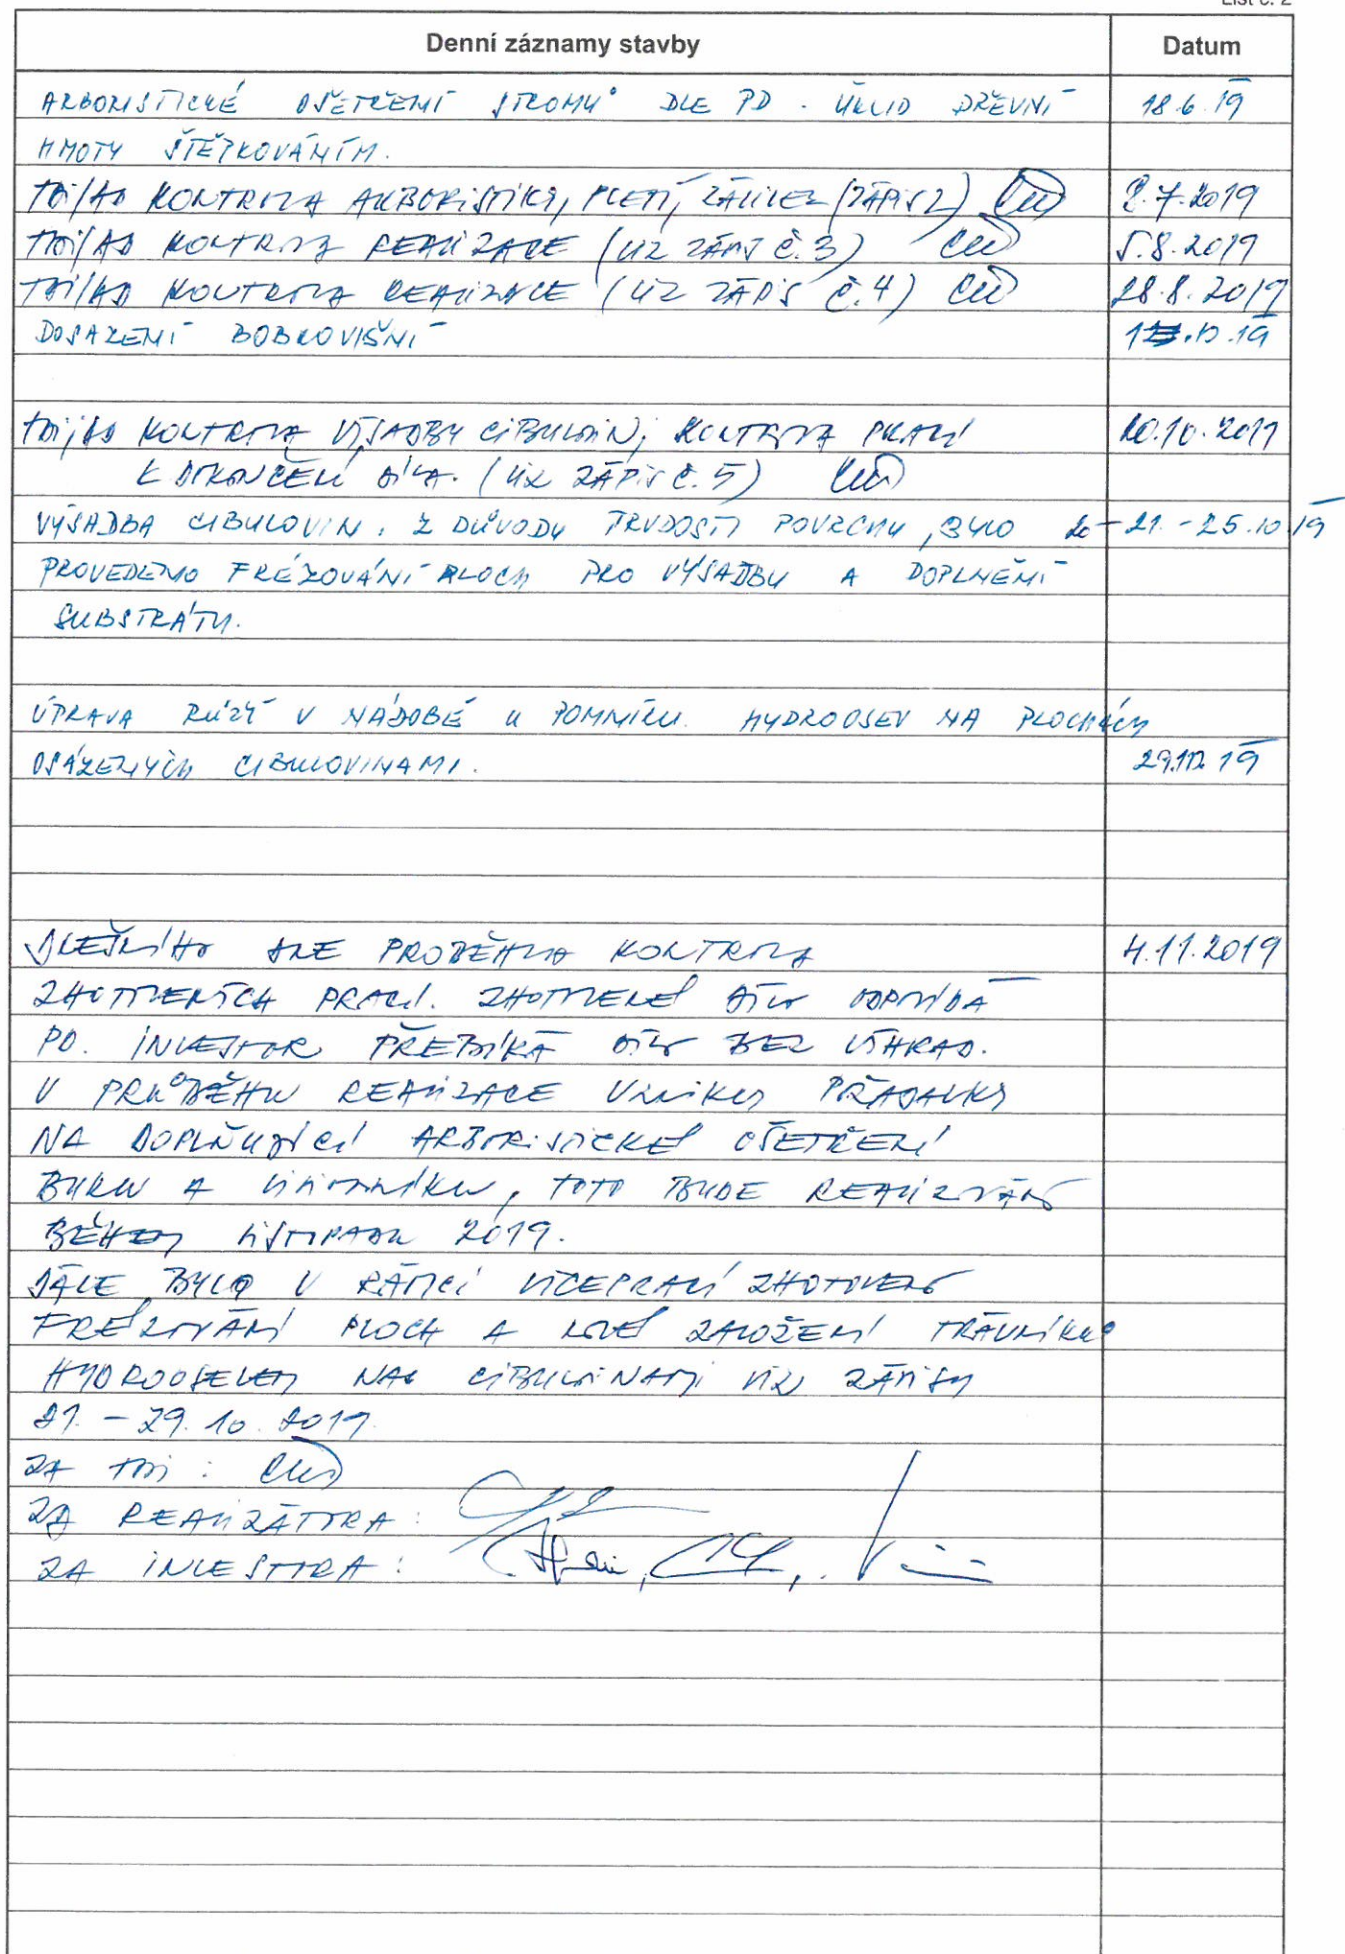 List č. 2
Denní záznamy stavby
Datum
ARBORISTICKÉ OŠETŘENÍ STROMŮ DLE PD. ÚKLID DŘEVNÍ 18.6.19
HMOTY ŠTĚPKOVÁNÍM.
TDI/AD KONTROLA ARBORISTIKY, PLETÍ, ZÁLIVEK (ZÁPIS 2) 2.7.2019
TDI/AD KONTROLA REALIZACE (VIZ ZÁPIS Č. 3) 5.8.2019
TDI/AD KONTROLA REALIZACE (VIZ ZÁPIS Č. 4) 28.8.2019
DOSAZENÍ BOBKOVIŠNÍ .10.19
TDI/AD KONTROLA VÝSADBY CIBULOVIN, KONTROLA PRACÍ .10.2019
K DOKONČENÍ DÍLA. (VIZ ZÁPIS Č. 5)
VÝSADBA CIBULOVIN. Z DŮVODU TVRDOSTI POVRCHU, BYLO 21. - 25.10.19
PROVEDENO FRÉZOVÁNÍ PLOCH PRO VÝSADBU A DOPLNĚNÍ
SUBSTRÁTU.
ÚPRAVA RŮŽÍ V NÁDOBĚ U POMNÍKU. HYDROOSEV NA PLOCHÁCH
OSÁZENÝCH CIBULOVINAMI. 29.10.19
DNEŠNÍHO DNE PROBĚHLA KONTROLA 4.11.2019
ZHOTOVENÝCH PRACÍ. ZHOTOVENÉ DÍLO ODPOVÍDÁ
PD. INVESTOR PŘEBÍRÁ DÍLO BEZ VÝHRAD.
V PRŮBĚHU REALIZACE VZNIKLY POŽADAVKY
NA DOPLŇUJÍCÍ ARBORISTICKÉ OŠETŘENÍ
BUKU A LILIOVNÍKU, TOTO BUDE REALIZOVÁNO
BĚHEM LISTOPADU 2019.
DÁLE BYLO V RÁMCI VÍCEPRACÍ ZHOTOVENO
FRÉZOVÁNÍ PLOCH A NOVÉ ZALOŽENÍ TRÁVNÍKU
HYDROOSEVEM NAD CIBULOVINAMI VIZ ZÁPISY
21. - 29.10.2019.
ZA TDI:
ZA REALIZÁTORA:
ZA INVESTORA: